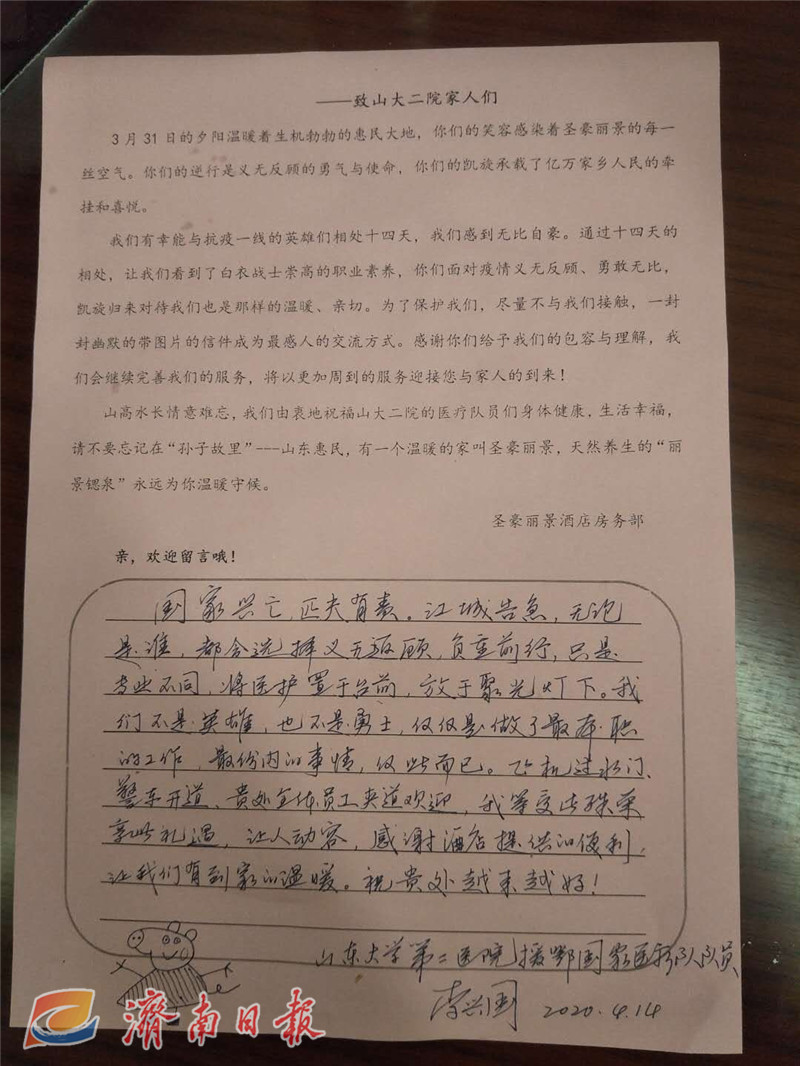 ——致山大二院家人们
3月31日的夕阳温暖着生机勃勃的惠民大地，你们的笑容感染着圣豪丽景的每一
丝空气。你们的逆行是义无反顾的勇气与使命，你们的凯旋承载了亿万家乡人民的牵
挂和喜悦。
我们有幸能与抗疫一线的英雄们相处十四天，我们感到无比自豪。通过十四天的
相处，让我们看到了白衣战士崇高的职业素养，你们面对疫情义无反顾、勇敢无比，
凯旋归来对待我们也是那样的温暖、亲切。为了保护我们，尽量不与我们接触，一封
封幽默的带图片的信件成为最感人的交流方式。感谢你们给予我们的包容与理解，我
们会继续完善我们的服务，将以更加周到的服务迎接您与家人的到来！
山高水长情意难忘，我们由衷地祝福山大二院的医疗队员们身体健康，生活幸福，
请不要忘记在“孙子故里”---山东惠民，有一个温暖的家叫圣豪丽景，天然养生的“丽
景锶泉”永远为你温暖守候。
圣豪丽景酒店房务部
亲，欢迎留言哦！
国家兴亡，匹夫有责。江城告急，无论
是谁，都会选择义无返顾，负重前行，只是
专业不同，将医护置于台前，放于聚光灯下。我
们不是英雄，也不是勇士，仅仅是做了最本职
的工作，最份内的事情，仅此而已。飞机过水门、
警车开道、贵处全体员工夹道欢迎，我等受此殊荣
享此礼遇，让人动容，感谢酒店提供的便利，
让我们有到家的温暖。祝贵处越来越好！
山东大学第二医院援鄂国家医疗队队员
李兴国 2020.4.14
济南日报